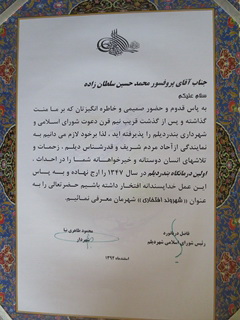 جناب آقای پروفسور محمد حسین سلطان زاده
سلام علیکم
به پاس قدوم و حضور صمیمی و خاطره انگیزتان که بر ما منت
گذاشته و پس از گذشت قریب نیم قرن دعوت شورای اسلامی و
شهرداری بندردیلم را پذیرفته اید ، لذا برخود لازم می دانیم به
نمایندگی از آحاد مردم شریف و قدرشناس دیلم ، زحمات و
تلاشهای انسان دوستانه و خیرخواهانه شما را در احداث
اولین درمانگاه بندردیلم در سال ۱۳۴۷ را ارج نهاده و به پاس
این عمل خداپسندانه افتخار داشته باشیم حضرتعالی را به
عنوان « شهروند افتخاری » شهرمان معرفی نمائیم.
محمود طاهری نیا
شهردار
رئیس شورای اسلامی شهردیلم
اسفندماه ۱۳۹۲